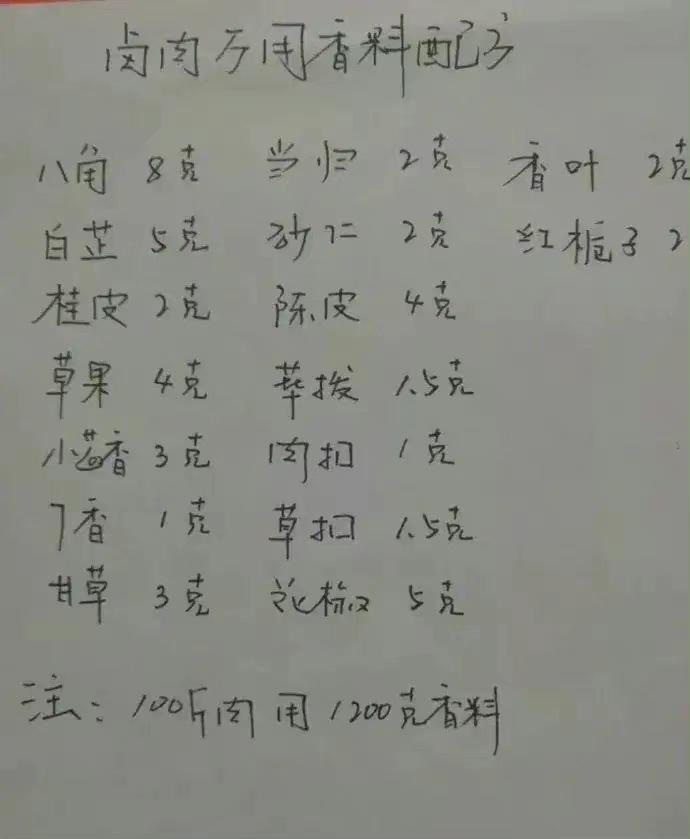 卤肉万用香料配方
八角 8克 当归 2克 香叶 2克
白芷 5克 砂仁 2克 红栀子 2
桂皮 2克 陈皮 4克
草果 4克 荜拨 1.5克
小茴香 3克 肉扣 1克
丁香 1克 草扣 1.5克
甘草 3克 花椒 5克
注：100斤肉用1200克香料